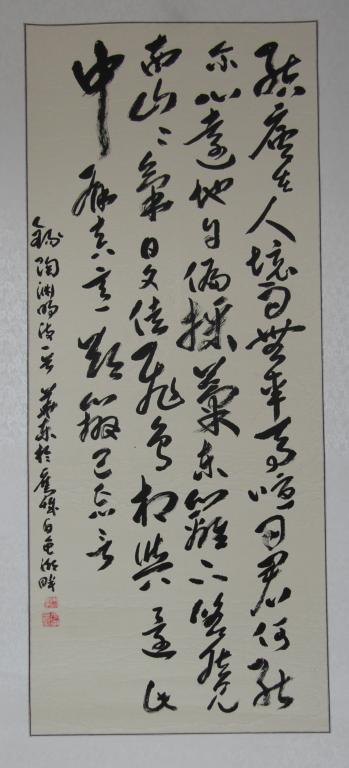 結廬在人境而無車馬喧問君何能
尔心遠地自偏採菊東籬下悠然見
南山〻氣日夕佳飛鳥相與還此
中有真意欲辯已忘言
錄陶淵明詩一首 於鷹城白龟湖畔